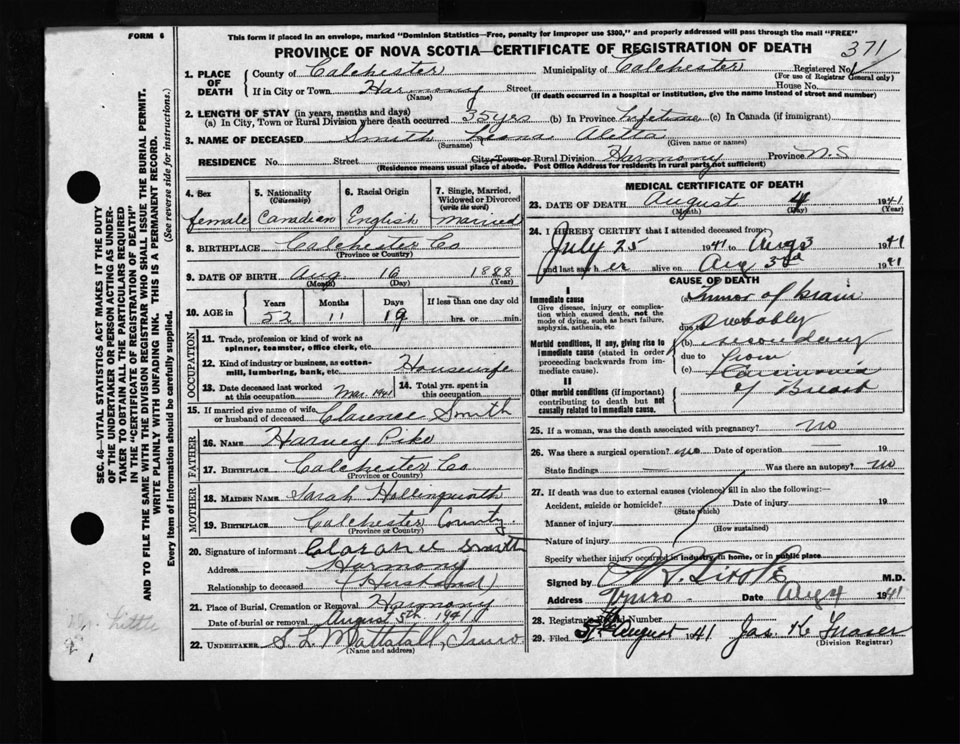 FORM 6
This form if placed in an envelope, marked "Dominion Statistics—Free, penalty for improper use $300," and properly addressed will pass through the mail "FREE"
PROVINCE OF NOVA SCOTIA—CERTIFICATE OF REGISTRATION OF DEATH 371
1. PLACE OF DEATH County of Colchester Municipality of Colchester Registered No.
(For use of Registrar General only)
If in City or Town Harmony Street House No.
(Name) (If death occurred in a hospital or institution, give the name instead of street and number)
2. LENGTH OF STAY (in years, months and days)
(a) In City, Town or Rural Division where death occurred 35 yrs (b) In Province Lifetime (c) In Canada (if immigrant)
3. NAME OF DECEASED Smith Leona Aletta
(Surname) (Given name or names)
RESIDENCE No. Street City, Town or Rural Division Harmony Province N.S
(Residence means usual place of abode. Post Office Address for residents in rural parts not sufficient)
4. Sex female
5. Nationality (Citizenship) Canadian
6. Racial Origin English
7. Single, Married, Widowed or Divorced (write the word) married
8. BIRTHPLACE Colchester Co
(Province or Country)
9. DATE OF BIRTH Aug 16 1888
(Month) (Day) (Year)
10. AGE in Years Months Days If less than one day old
52 11 19 hrs. or min.
OCCUPATION
11. Trade, profession or kind of work as spinner, teamster, office clerk, etc.
12. Kind of industry or business, as cotton-mill, lumbering, bank, etc. Housewife
13. Date deceased last worked at this occupation Mar. 1941
14. Total yrs. spent in this occupation
15. If married give name of wife or husband of deceased Clarence Smith
FATHER
16. NAME Harvey Pike
17. BIRTHPLACE Colchester Co.
(Province or Country)
MOTHER
18. MAIDEN NAME Sarah Hollingworth
19. BIRTHPLACE Colchester County.
(Province or Country)
20. Signature of informant Clarance Smith
Address Harmony
Relationship to deceased (Husband)
21. Place of Burial, Cremation or Removal Harmony
Date of burial or removal August 5th 1941
22. UNDERTAKER S. L. Mattatall, Truro
(Name and address)
MEDICAL CERTIFICATE OF DEATH
23. DATE OF DEATH August 4 1941
(Month) (Day) (Year)
24. I HEREBY CERTIFY that I attended deceased from:
July 25 1941 to Aug 3 1941
and last saw h er alive on Aug 3rd 1941
CAUSE OF DEATH
I
Immediate cause
Give disease, injury or complication which caused death, not the mode of dying, such as heart failure, asphyxia, asthenia, etc.
(a) Tumor of brain
due to Probably
Morbid conditions, if any, giving rise to immediate cause (stated in order proceeding backwards from immediate cause).
(b) secondary
due to from
(c) Carcinoma
of Breast
II
Other morbid conditions (if important) contributing to death but not causally related to immediate cause.
25. If a woman, was the death associated with pregnancy? no
26. Was there a surgical operation? no Date of operation 19
State findings Was there an autopsy? no
27. If death was due to external causes (violence) fill in also the following:—
Accident, suicide or homicide? Date of injury 19
(State which)
Manner of injury
(How sustained)
Nature of injury
Specify whether injury occurred in industry, in home, or in public place
Signed by M.D.
Address Truro Date Aug 4 1941
28. Registrar's Record Number
29. Filed 5th August 1941 Jas. K Fraser
(Division Registrar)
SEC. 46—VITAL STATISTICS ACT MAKES IT THE DUTY
OF THE UNDERTAKER OR PERSON ACTING AS UNDER-
TAKER TO OBTAIN ALL THE PARTICULARS REQUIRED
IN THE "CERTIFICATE OF REGISTRATION OF DEATH"
AND TO FILE THE SAME WITH THE DIVISION REGISTRAR WHO SHALL ISSUE THE BURIAL PERMIT.
WRITE PLAINLY WITH UNFADING INK. THIS IS A PERMANENT RECORD.
Every item of information should be carefully supplied. (See reverse side for instructions.)